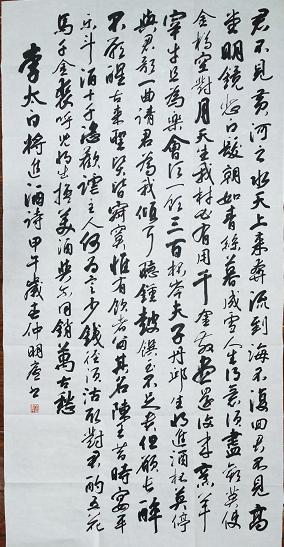 君不見黃河之水天上來奔流到海不復回君不見高
堂明鏡悲白髮朝如青絲暮成雪人生得意須盡歡莫使
金樽空對月天生我材必有用千金散盡還復來烹羊
宰牛且為樂會須一飲三百杯岑夫子丹邱生將進酒杯莫停
與君歌一曲請君為我傾耳聽鐘鼓饌玉不足貴但願長醉
不願醒古來聖賢皆寂寞惟有飲者留其名陳王昔時宴平
樂斗酒十千恣歡謔主人何為言少錢徑須沽取對君酌五花
馬千金裘呼兒將出換美酒與爾同銷萬古愁
李太白將進酒詩 甲午歲春仲明廬書